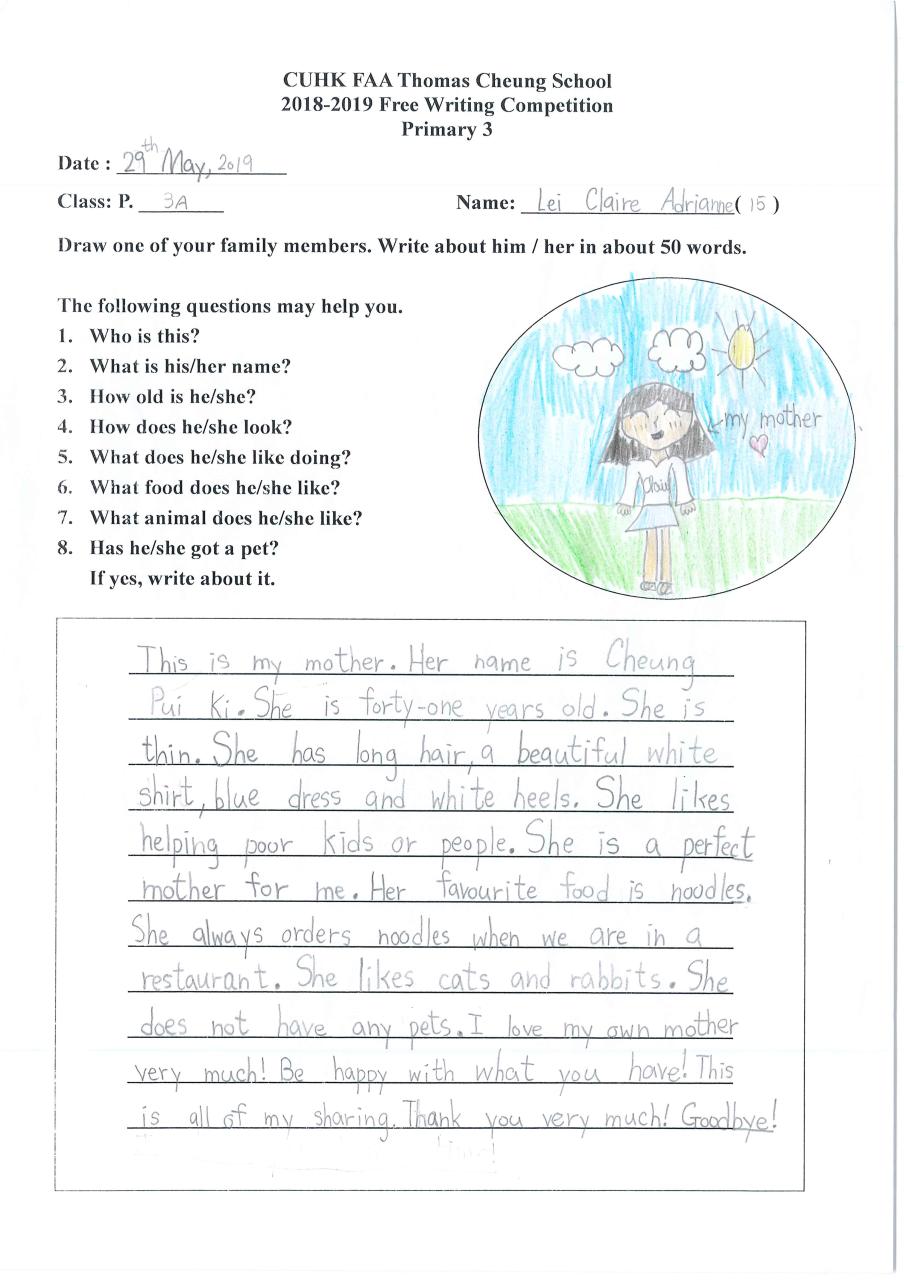 CUHK FAA Thomas Cheung School
2018-2019 Free Writing Competition
Primary 3
Date : 29th May, 2019
Class: P. 3A Name: Lei Claire Adrianne( 15 )
Draw one of your family members. Write about him / her in about 50 words.
The following questions may help you.
1. Who is this?
2. What is his/her name?
3. How old is he/she?
4. How does he/she look?
5. What does he/she like doing?
6. What food does he/she like?
7. What animal does he/she like?
8. Has he/she got a pet?
If yes, write about it.
my mother
This is my mother. Her name is Cheung
Pui Ki. She is forty-one years old. She is
thin. She has long hair, a beautiful white
shirt, blue dress and white heels. She likes
helping poor kids or people. She is a perfect
mother for me. Her favourite food is noodles.
She always orders noodles when we are in a
restaurant. She likes cats and rabbits. She
does not have any pets. I love my own mother
very much! Be happy with what you have! This
is all of my sharing. Thank you very much! Goodbye!